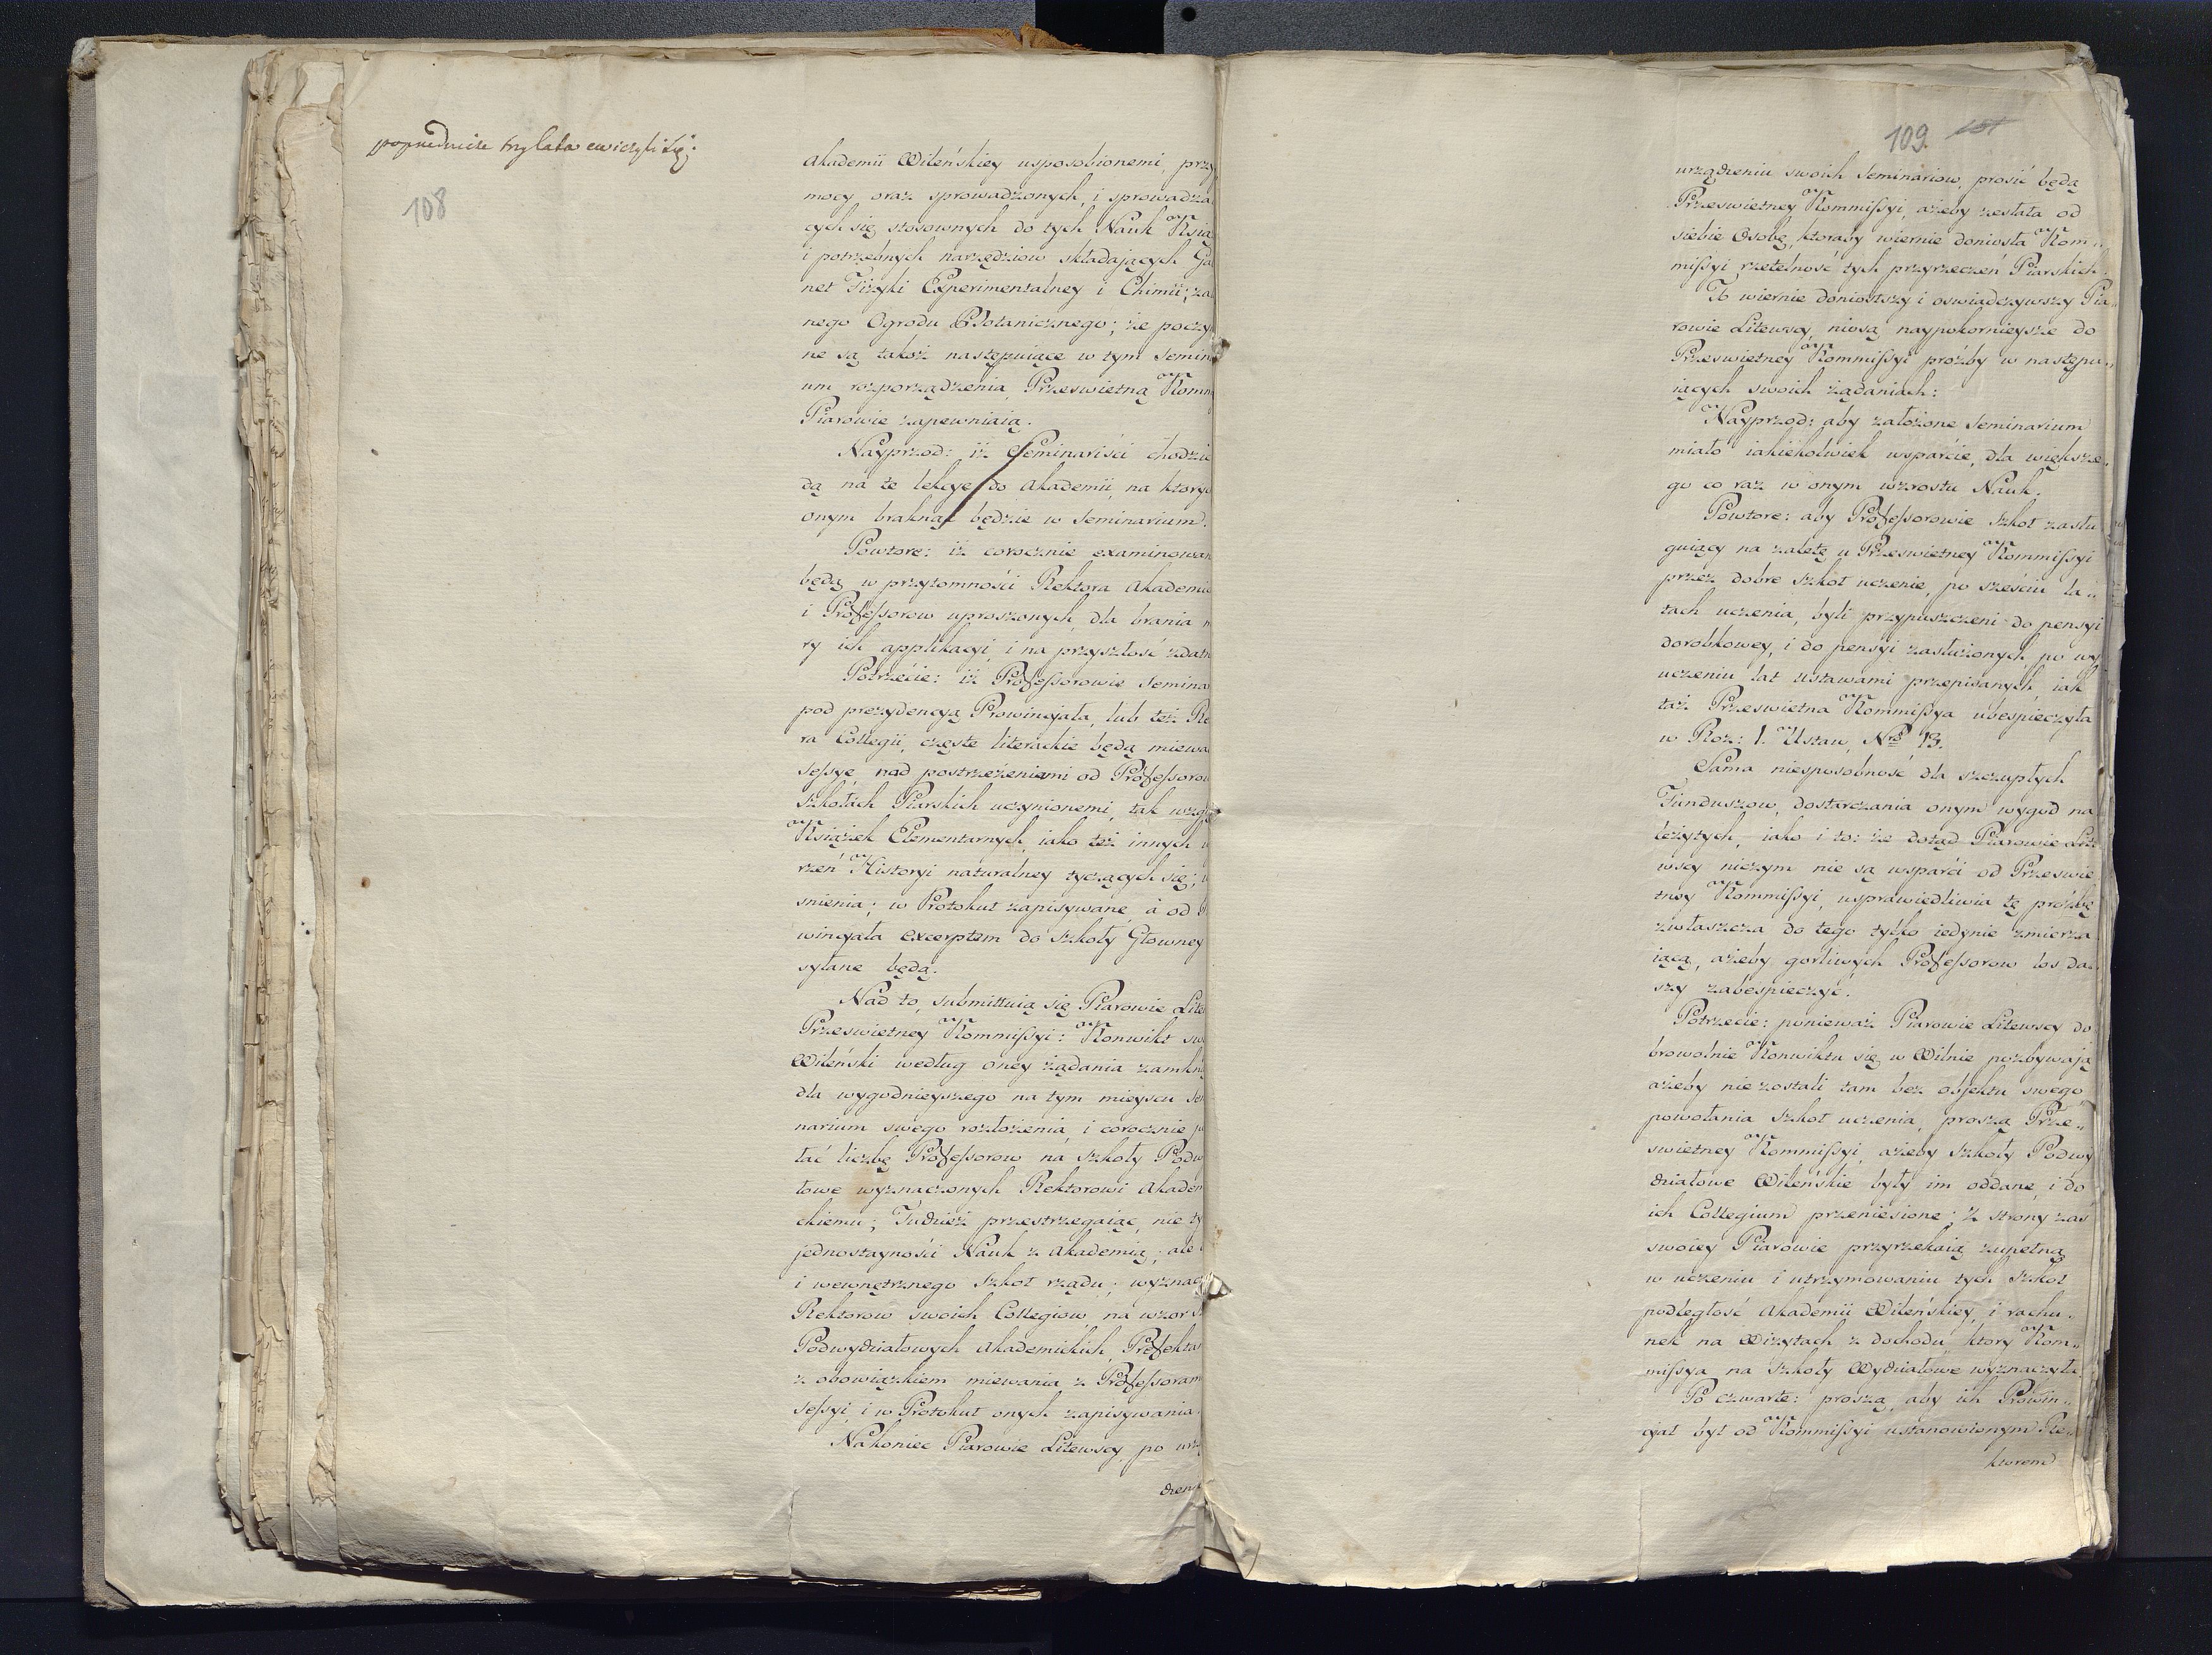 poprzednicze trzy lata cwiczyli się;
108
Akademii Wileńskiey usposobionemi, przy
mocy oraz sprowadzonych, i sprowadza
cych się stosownych do tych Nauk Ksią
i potrzebnych narzędziow składających Ga
net Fizyki Experimentalney i Chimii; za
nego Ogrodu Botanicznego; że poczy
ne są takoż następuiące w tym Semin
um rozporządzenia, Przeswietną Komm
Piarowie zapewniaią.
Nayprzod: iż Seminariści chodzic
dą na te lekcye do Akademii, na ktorych
onym braknąć będzie w Seminarium.
Powtore: iż corocznie examinowan
będą w przytomności Rektora Akademic
i Professorow uproszonych, dla brania m
ry ich applikacyi, i na przyszłość zdatn
Potrzecie: iż Professorowie Semina
pod prezydencyą Prowincyała, lub też Re
ra Collegii, częste literackie będą miewa
sessye, nad postrzeżeniami od Professorow
szkołach Piarskich uczynionemi, tak wzglę
Książek Elementarnych, iako też innych w
rzeń Historyi naturalney tyczących się;
snienia; w Protokuł zapisywane, a od
wincyała excerptem do szkoły Głowney
syłane będą.
Nad to, submittuią się Piarowie Lite
Przeswietney Kommissyi: Konwikt sw
Wileński według oney żądania zamkną
dla wygodnieyszego na tym mieyscu Se
narium swego rozłożenia, i corocznie p
łać liczbę Professorow na szkoły Podw
łowe wyznaczonych Rektorowi Akadem
ckiemu; Tudzież przestrzegaiąc, nie ty
jednostayności Nauk z Akademią; ale
i wewnętrznego szkoł rządu; wyznac
Rektorow swoich Collegiow, na wzor sz
Podwydziałowych Akademickich, Prefekta
z obowiązkiem miewania z Professoram
sessyi, i w Protokuł onych zapisywania.
Nakoniec Piarowie Litewscy, po urz
dzeni
109. 107
urządzeniu swoich Seminariow, prosić będą
Przeswietney Kommissyi, ażeby zesłała od
siebie Osobę, ktoraby wiernie doniosła Kom„
missyi rzetelność tych przyrzeczeń Piarskich.
To wiernie doniosłszy i oswiadczywszy Pia„
rowie Litewscy, niosą naypokornieysze do
Przeswietney Kommissyi proźby w następu„
iących swoich żądaniach:
Nayprzod: aby założone Seminarium
miało iakiekolwiek wsparcie, dla większe„
go co raz w onym wzrostu Nauk.
Powtore: aby Professorowie szkoł zasłu
guiący na zaletę u Przeswietney Kommissyi
przez dobre szkoł uczenie, po sześciu la„
tach uczenia, byli przypuszczeni do pensyi
dorobkowey, i do pensyi zasłużonych po wy
uczeniu lat Ustawami przepisanych, iak
taż Przeswietna Kommissya ubespieczyła
w Roz: 1. Ustaw, Nro 13.
Sama niesposobność dla szczupłych
Funduszow, dostarczania onym wygod na
leżytych, iako i to: że dotąd Piarowie Lite
wscy niczym nie są wsparci od Przeswie
tney Kommissyi, usprawiedliwia tę prożbę
zwłaszcza do tego tylko iedynie zmierza
iącą, ażeby gorliwych Professorow los da„
szy zabespieczyć.
Potrzecie: ponieważ Piarowie Litewscy do
browolnie Konwiktu się w Wilnie pozbywaią
ażeby nie zostali tam bez objektu swego
powołania szkoł uczenia, proszą Prze„
swietney Kommissyi, ażeby szkoły Podwy
działowe Wileńskie były im oddane, i do
ich Collegium przeniesione; z strony zaś
swoiey Piarowie przyrzekaią zupełną
w uczeniu i utrzymowaniu tych szkoł
podległość Akademii Wileńskiey, i rachu„
nek na Wizytach z dochodu, ktory Kom„
missya na szkoły Wydziałowe wyznaczyła.
Po czwarte: proszą, aby ich Prowin„
cyał był od Kommissyi ustanowionym Re„
ktorem